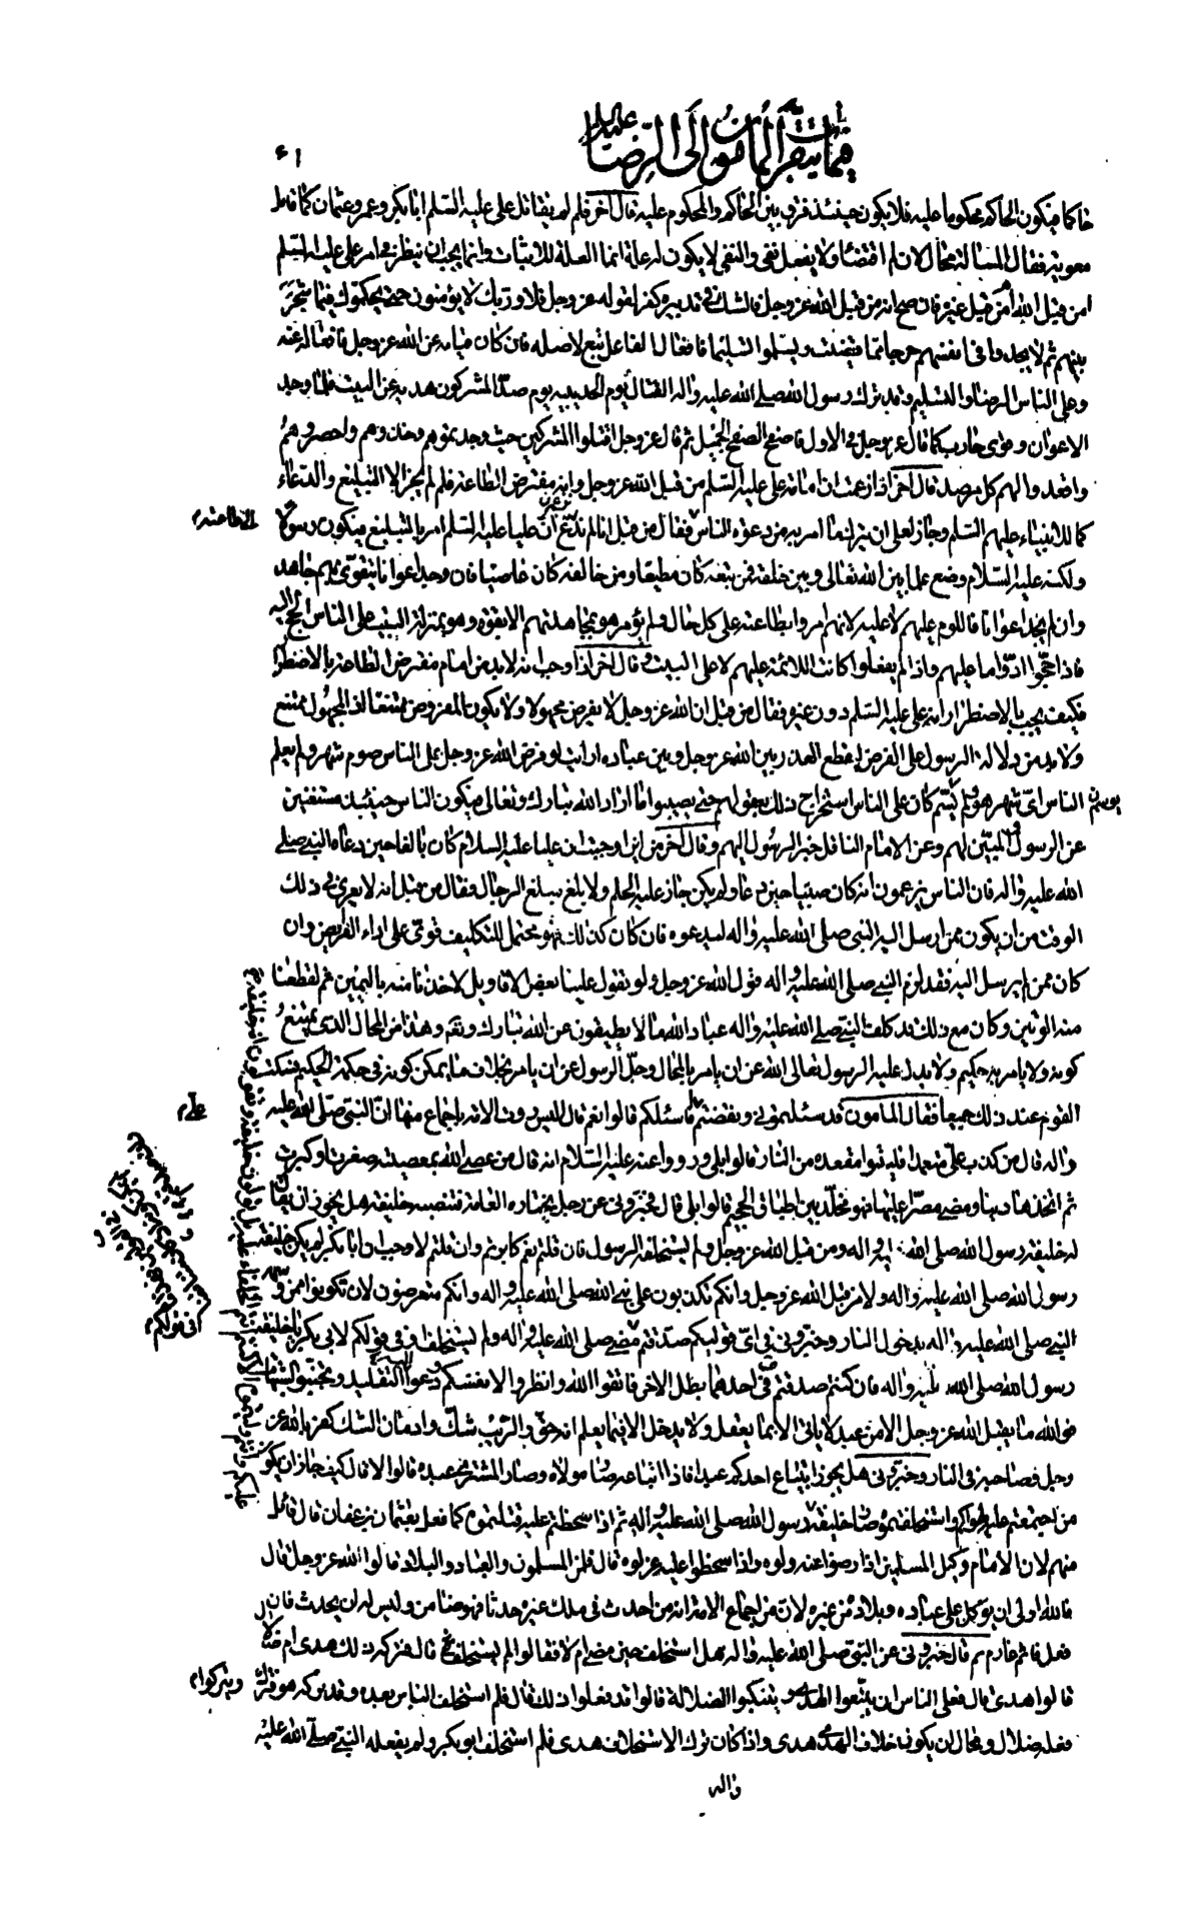 فيما يتقرب المأمون الى الرضا عليه السلام
حاكما فيكون الحاكم محكوما عليه فلا يكون حينئذ فرق بين الحاكم والمحكوم عليه قال آخر فلم لم يقاتل علي عليه السلم ابا بكر وعمر وعثمان كما قاتل
معوية فقال المسألة محال لان لم اقتضاء ولا يفعل نفى والنفى لا يكون له علة انما العلة للاثبات وانما يجب ان ينظر في امر علي عليه السلم
امن قبل الله ام من قبل غيره فان صح انه من قبل الله عز وجل فالشك في تدبيره كفر لقوله عز وجل فلا وربك لا يؤمنون حتى يحكموك فيما شجر
بينهم ثم لا يجدوا في انفسهم حرجا مما قضيت ويسلموا تسليما فافعال الفاعل تبع لاصله فان كان قيامه عن الله عز وجل فافعاله عنه
وعلى الناس الرضا والتسليم وقد ترك رسول الله صلى الله عليه واله القتال يوم الحديبيه يوم صد المشركون هديه عن البيت فلما وجد
الاعوان وقوى حارب كما قال عز وجل في الاول فاصفح الصفح الجميل ثم قال عز وجل اقتلوا المشركين حيث وجدتموهم وخذوهم واحصروهم
واقعدوا لهم كل مرصد قال آخر اذا زعمت ان امامة علي عليه السلم من قبل الله عز وجل وانه مفترض الطاعة فلم لم يجز الا التبليغ والدعاء
كما للانبياء عليهم السلم وجاز لعلي ان يترك ما امر به من دعوة الناس فقال من قبل انا لم ندع ان عليا عليه السلم امر بالتبليغ فيكون رسولا
الى طاعته
ولكنه عليه السلام وضع علما بين الله تعالى وبين خلقه فمن تبعه كان مطيعا ومن خالفه كان عاصيا فان وجد اعوانا يتقوى بهم جاهد
وان لم يجد اعوانا فاللوم عليهم لا عليه لانهم امروا بطاعته على كل حال ولم يؤمر هو بمجاهدتهم الا بقوة وهو بمنزلة البيت على الناس الحج اليه
فاذا حجوا ادوا ما عليهم واذا لم يفعلوا كانت اللائمة عليهم لا على البيت وقال آخر اذا وجب انه لابد من امام مفترض الطاعة بالاضطرار
فكيف يجب بالاضطرار انه علي عليه السلم دون غيره فقال من قبل ان الله عز وجل لا يفرض مجهولا ولا يكون المفروض ممتنعا اذ المجهول ممتنع
ولابد من دلالة الرسول على الفرض ليقطع العذر بين الله عز وجل وبين عباده ارايت لو فرض الله عز وجل على الناس صوم شهر ولم يعلم
الناس اى شهر هو ولم يسم كان على الناس استخراج ذلك بعقولهم حتى يصيبوا ما اراد الله تبارك وتعالى فيكون الناس حينئذ مستغنين
عن الرسول المبين لهم وعن الامام الناقل خبر الرسول اليهم وقال آخر من اين اوجبت ان عليا عليه السلام كان بالغا حين دعاه النبي صلى
الله عليه واله فان الناس يزعمون انه كان صبيا حين دعا ولم يكن جاز عليه الحكم ولا بلغ مبلغ الرجال فقال من قبل انه لا يعرى في ذلك
الوقت من ان يكون ممن ارسل اليه النبي صلى الله عليه واله ليدعوه فان كان كذلك فهو محتمل للتكليف قوى على اداء الفرايض وان
كان ممن لم يرسل اليه فقد لزم النبي صلى الله عليه واله قول الله عز وجل ولو تقول علينا بعض الاقاويل لاخذنا منه باليمين ثم لقطعنا
منه الوتين وكان مع ذلك قد كلف النبي صلى الله عليه واله عباد الله ما لا يطيقون عن الله تبارك وتعالى وهذا من المحال الذى يمتنع
كونه ولا يامر به حكيم ولا يدل عليه الرسول تعالى الله عن ان يامر بالمحال وجل الرسول عن ان يامر بخلاف ما يمكن كونه في حكمة الحكيم فسكت
القوم عند ذلك جميعا فقال المامون قد سئلتموني ونقضتم فاسئلكم قالوا نعم قال اليس روت الامة باجماع منها ان النبي صلى الله عليه
علي م
واله قال من كذب علي متعمدا فليتبوا مقعده من النار قالوا بلى ورووا عنه عليه السلام انه قال من عصى الله بمعصية صغرت او كبرت
ثم اتخذها دينا ومضى مصرا عليها فهو مخلد بين اطباق الجحيم قالوا بلى قال فخبروني عن رجل يختاره العامة فتنصبه خليفة هل يجوز ان يقال
له خليفة رسول الله صلى الله عليه واله ومن قبل الله عز وجل ولم يستخلفه الرسول فان قلتم نعم كابرتم وان قلتم لا وجب ان ابا بكر لم يكن خليفة
رسول الله صلى الله عليه واله ولا من قبل الله عز وجل وانكم تكذبون على نبي الله صلى الله عليه واله وانكم متعرضون لان تكونوا ممن وسمه
النبي صلى الله عليه واله بدخول النار وخبروني في اى قوليكم صدقتم مضى صلى الله عليه واله ولم يستخلف او في قولكم لابي بكر يا خليفة
رسول الله صلى الله عليه واله فان كنتم صدقتم في احدهما بطل الاخر فاتقوا الله وانظروا لانفسكم ودعوا التقليد وتجنبوا الشبهات
فوالله ما يقبل الله عز وجل الا من عبد لا ياتى الا بما يعقل ولا يدخل الا فيما يعلم انه حق والريب شك وادمان الشك كفر بالله عز
وجل وصاحبه في النار وخبروني هل يجوز ابتياع احدكم عبدا فاذا ابتاعه صار مولاه وصار المشترى عبده قالوا لا قال كيف جاز ان يكون
من اجتمعتم عليه لهواكم واستخلفتموه صار خليفة رسول الله صلى الله عليه واله ثم اذا سخطتم عليه قتلتموه كما فعل بعثمان بن عفان قال قائل
منهم لان الامام وكيل المسلمين اذا رضوا عنه ولوه واذا سخطوا عليه عزلوه قال فلمن المسلمون والعباد والبلاد قالوا لله عز وجل قال
فالله اولى ان يوكل على عباده وبلاده من غيره لان من اجماع الامة انه من احدث في ملك غيره حدثا فهو ضامن وليس له ان يحدث فان
فعل فاثم غارم ثم قال خبروني عن النبي صلى الله عليه واله هل استخلف حين مضى ام لا فقالوا لم يستخلف قال فتركه ذلك هدى ام ضلال
قالوا هدى قال فعلى الناس ان يتبعوا الهدى ويتنكبوا الضلالة قالوا قد فعلوا ذلك قال فلم استخلف الناس بعده وقد تركه هو فترك
ويتركوا م
فعله ضلال ومحال ان يكون خلاف الهدى هدى واذا كان ترك الاستخلاف هدى فلم استخلف ابو بكر ولم يفعله النبي صلى الله عليه
واله